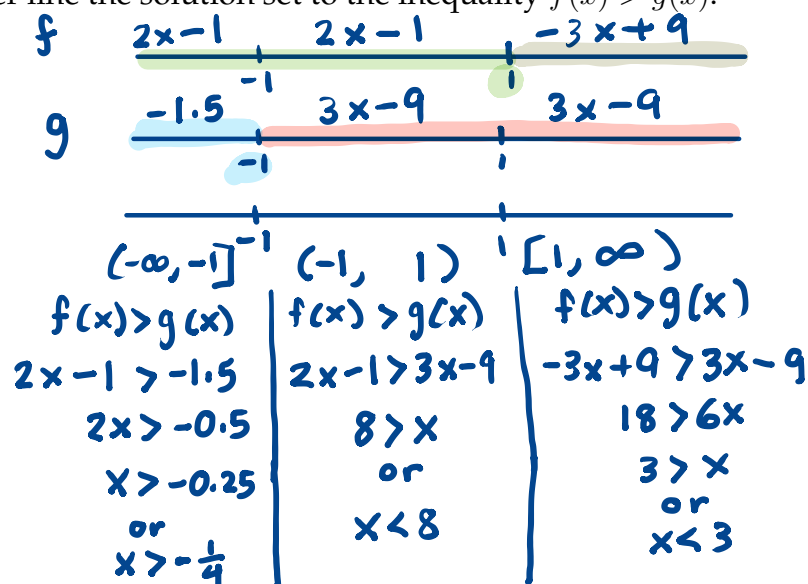 er line the solution set to the inequality f(x) > g(x).
f 2x-1 2x-1 -3x+9
-1 1
g -1.5 3x-9 3x-9
-1 1
-1 1
(-∞,-1] (-1, 1) [1, ∞)
f(x)>g(x) f(x)>g(x) f(x)>g(x)
2x-1>-1.5 2x-1>3x-9 -3x+9>3x-9
2x>-0.5 8>x 18>6x
x>-0.25 or 3>x
or x<8 or
x>-1/4 x<3